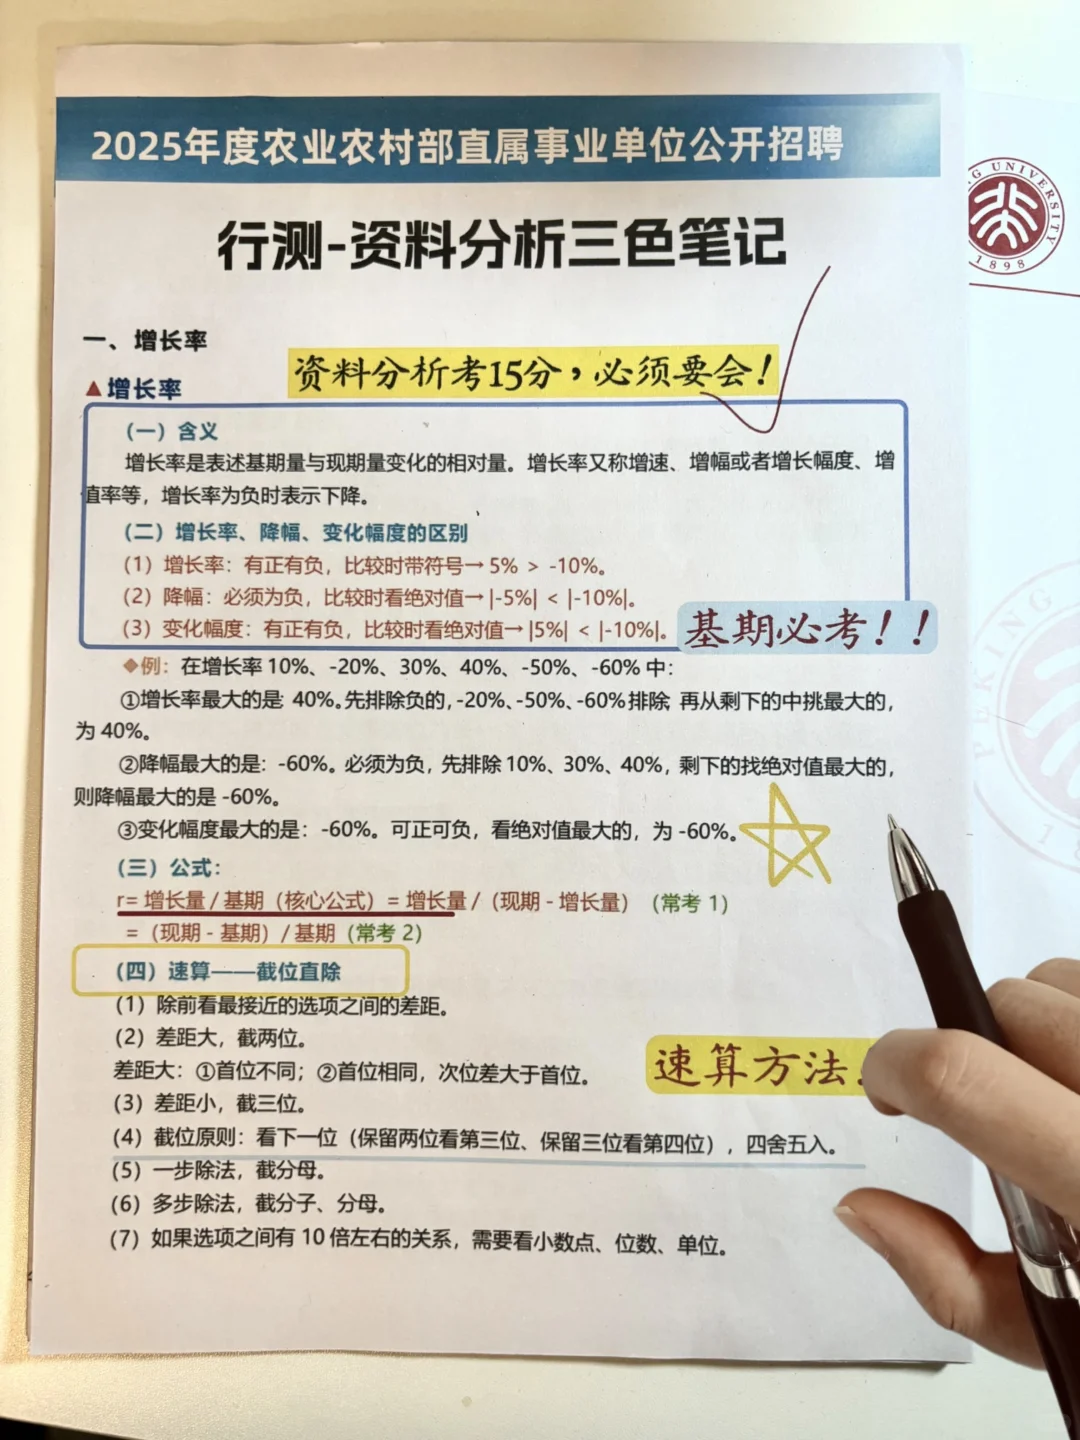 2025年度农业农村部直属事业单位公开招聘
行测-资料分析三色笔记
一、增长率
资料分析考15分，必须要会！
▲增长率
（一）含义
增长率是表述基期量与现期量变化的相对量。增长率又称增速、增幅或者增长幅度、增
值率等，增长率为负时表示下降。
（二）增长率、降幅、变化幅度的区别
（1）增长率：有正有负，比较时带符号→5% > -10%。
（2）降幅：必须为负，比较时看绝对值→|-5%| < |-10%|。
（3）变化幅度：有正有负，比较时看绝对值→|5%| < |-10%|。
基期必考！！
◆例：在增长率 10%、-20%、30%、40%、-50%、-60% 中：
①增长率最大的是 40%。先排除负的，-20%、-50%、-60% 排除 再从剩下的中挑最大的，
为 40%。
②降幅最大的是：-60%。必须为负，先排除 10%、30%、40%，剩下的找绝对值最大的，
则降幅最大的是 -60%。
③变化幅度最大的是：-60%。可正可负，看绝对值最大的，为 -60%。
（三）公式：
r= 增长量 / 基期（核心公式）= 增长量 /（现期 - 增长量）（常考 1）
=（现期 - 基期）/ 基期（常考 2）
（四）速算——截位直除
（1）除前看最接近的选项之间的差距。
（2）差距大，截两位。
差距大：①首位不同；②首位相同，次位差大于首位。
速算方法
（3）差距小，截三位。
（4）截位原则：看下一位（保留两位看第三位、保留三位看第四位），四舍五入。
（5）一步除法，截分母。
（6）多步除法，截分子、分母。
（7）如果选项之间有 10 倍左右的关系，需要看小数点、位数、单位。
UNIVERSITY
1898
PEKING